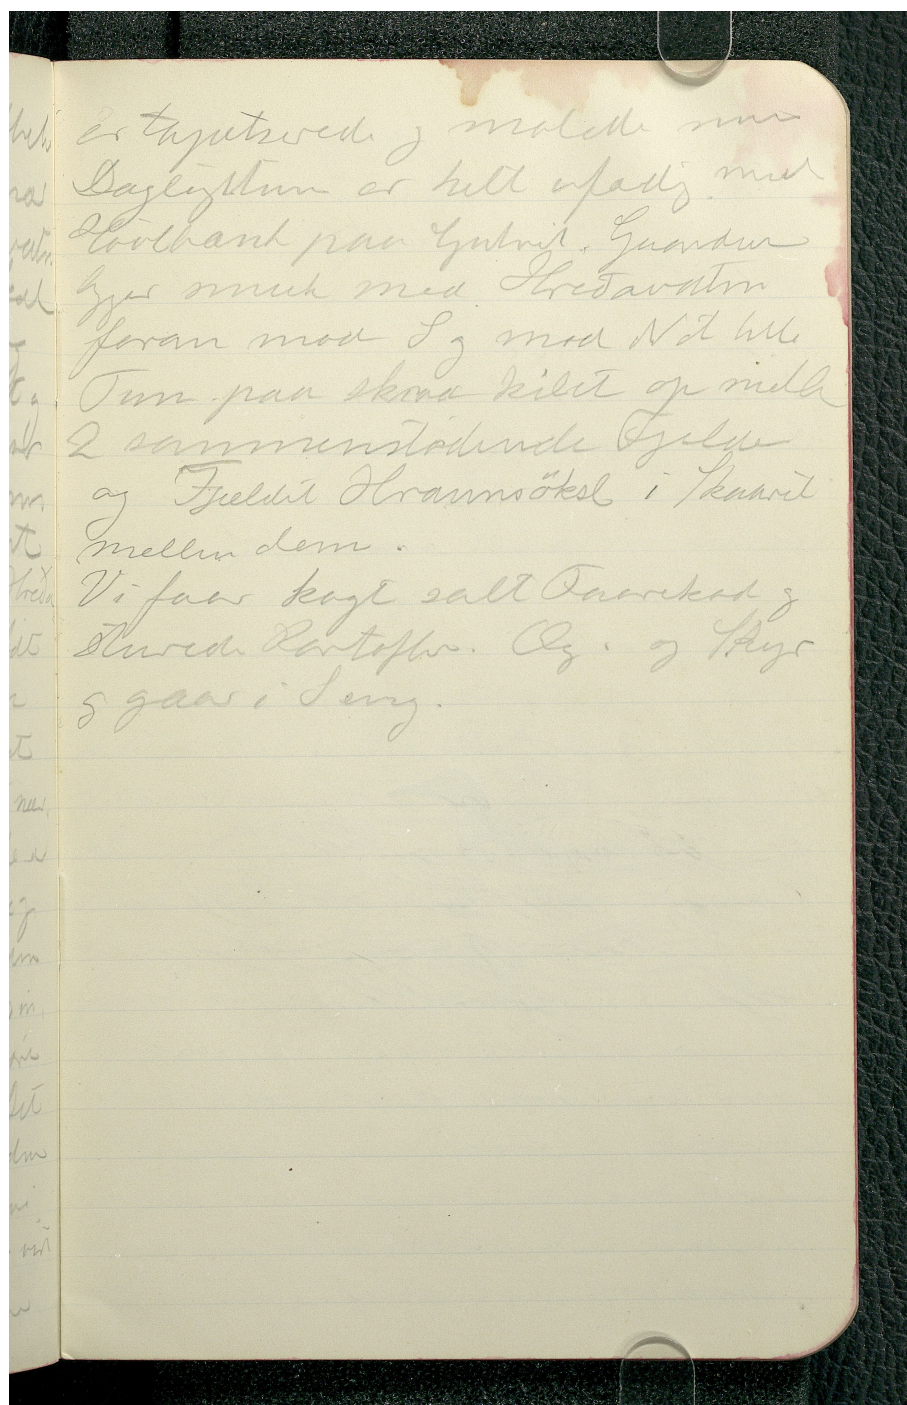 er tapetserede og malede men
Dagligstuen er helt ufærdig med
Høvlbænk paa Gulvet. Gaarden
ligger smuck med Hredavatn
foran mod S og mod N et lille
Tun paa skraa kilet op mellem
2 sammenstødende Fjelde
og Fjeldet Hraunsöksl i Skaaret
mellem dem.
Vi faar kogt salt Faarekød og
skurede Kartofler. Æg. og Skyr
og gaar i Seng.